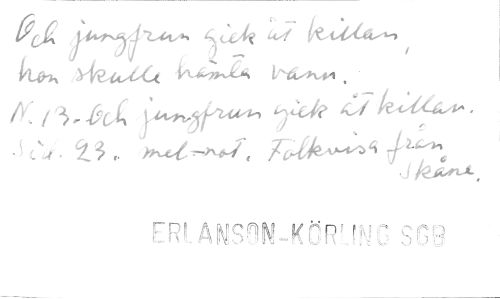 Och jungfrun gick åt killan,
hon skulle hämta vann.
N. 13 - Och jungfrun gick åt killan.
Sid. 23. mel-not. Folkvisa från
Skåne.
ERLANSON-KÖRLING SGB